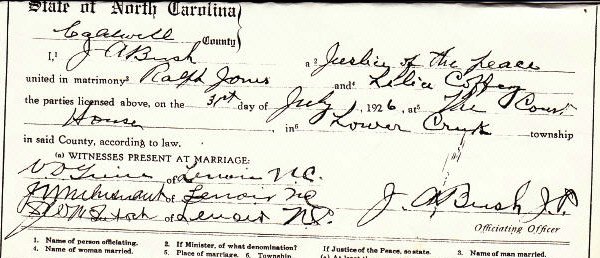 State of North Carolina,
Caldwell County
I,¹ J A Bush a² Justice of the peace
united in matrimony³ Ralph Jones and⁴ Lelia Coffey
the parties licensed above, on the 31st day of July, 1926, at⁵ The Court
House in⁶ Lower Creek township
in said County, according to law.
(a) WITNESSES PRESENT AT MARRIAGE:
of Lenoir N.C.
of Lenoir NC
of Lenoir N.C.
J. A Bush J.P.
Officiating Officer
1. Name of person officiating. 2. If Minister, of what denomination? If Justice of the Peace, so state. 3. Name of man married.
4. Name of woman married. 5. Place of marriage. 6. Township